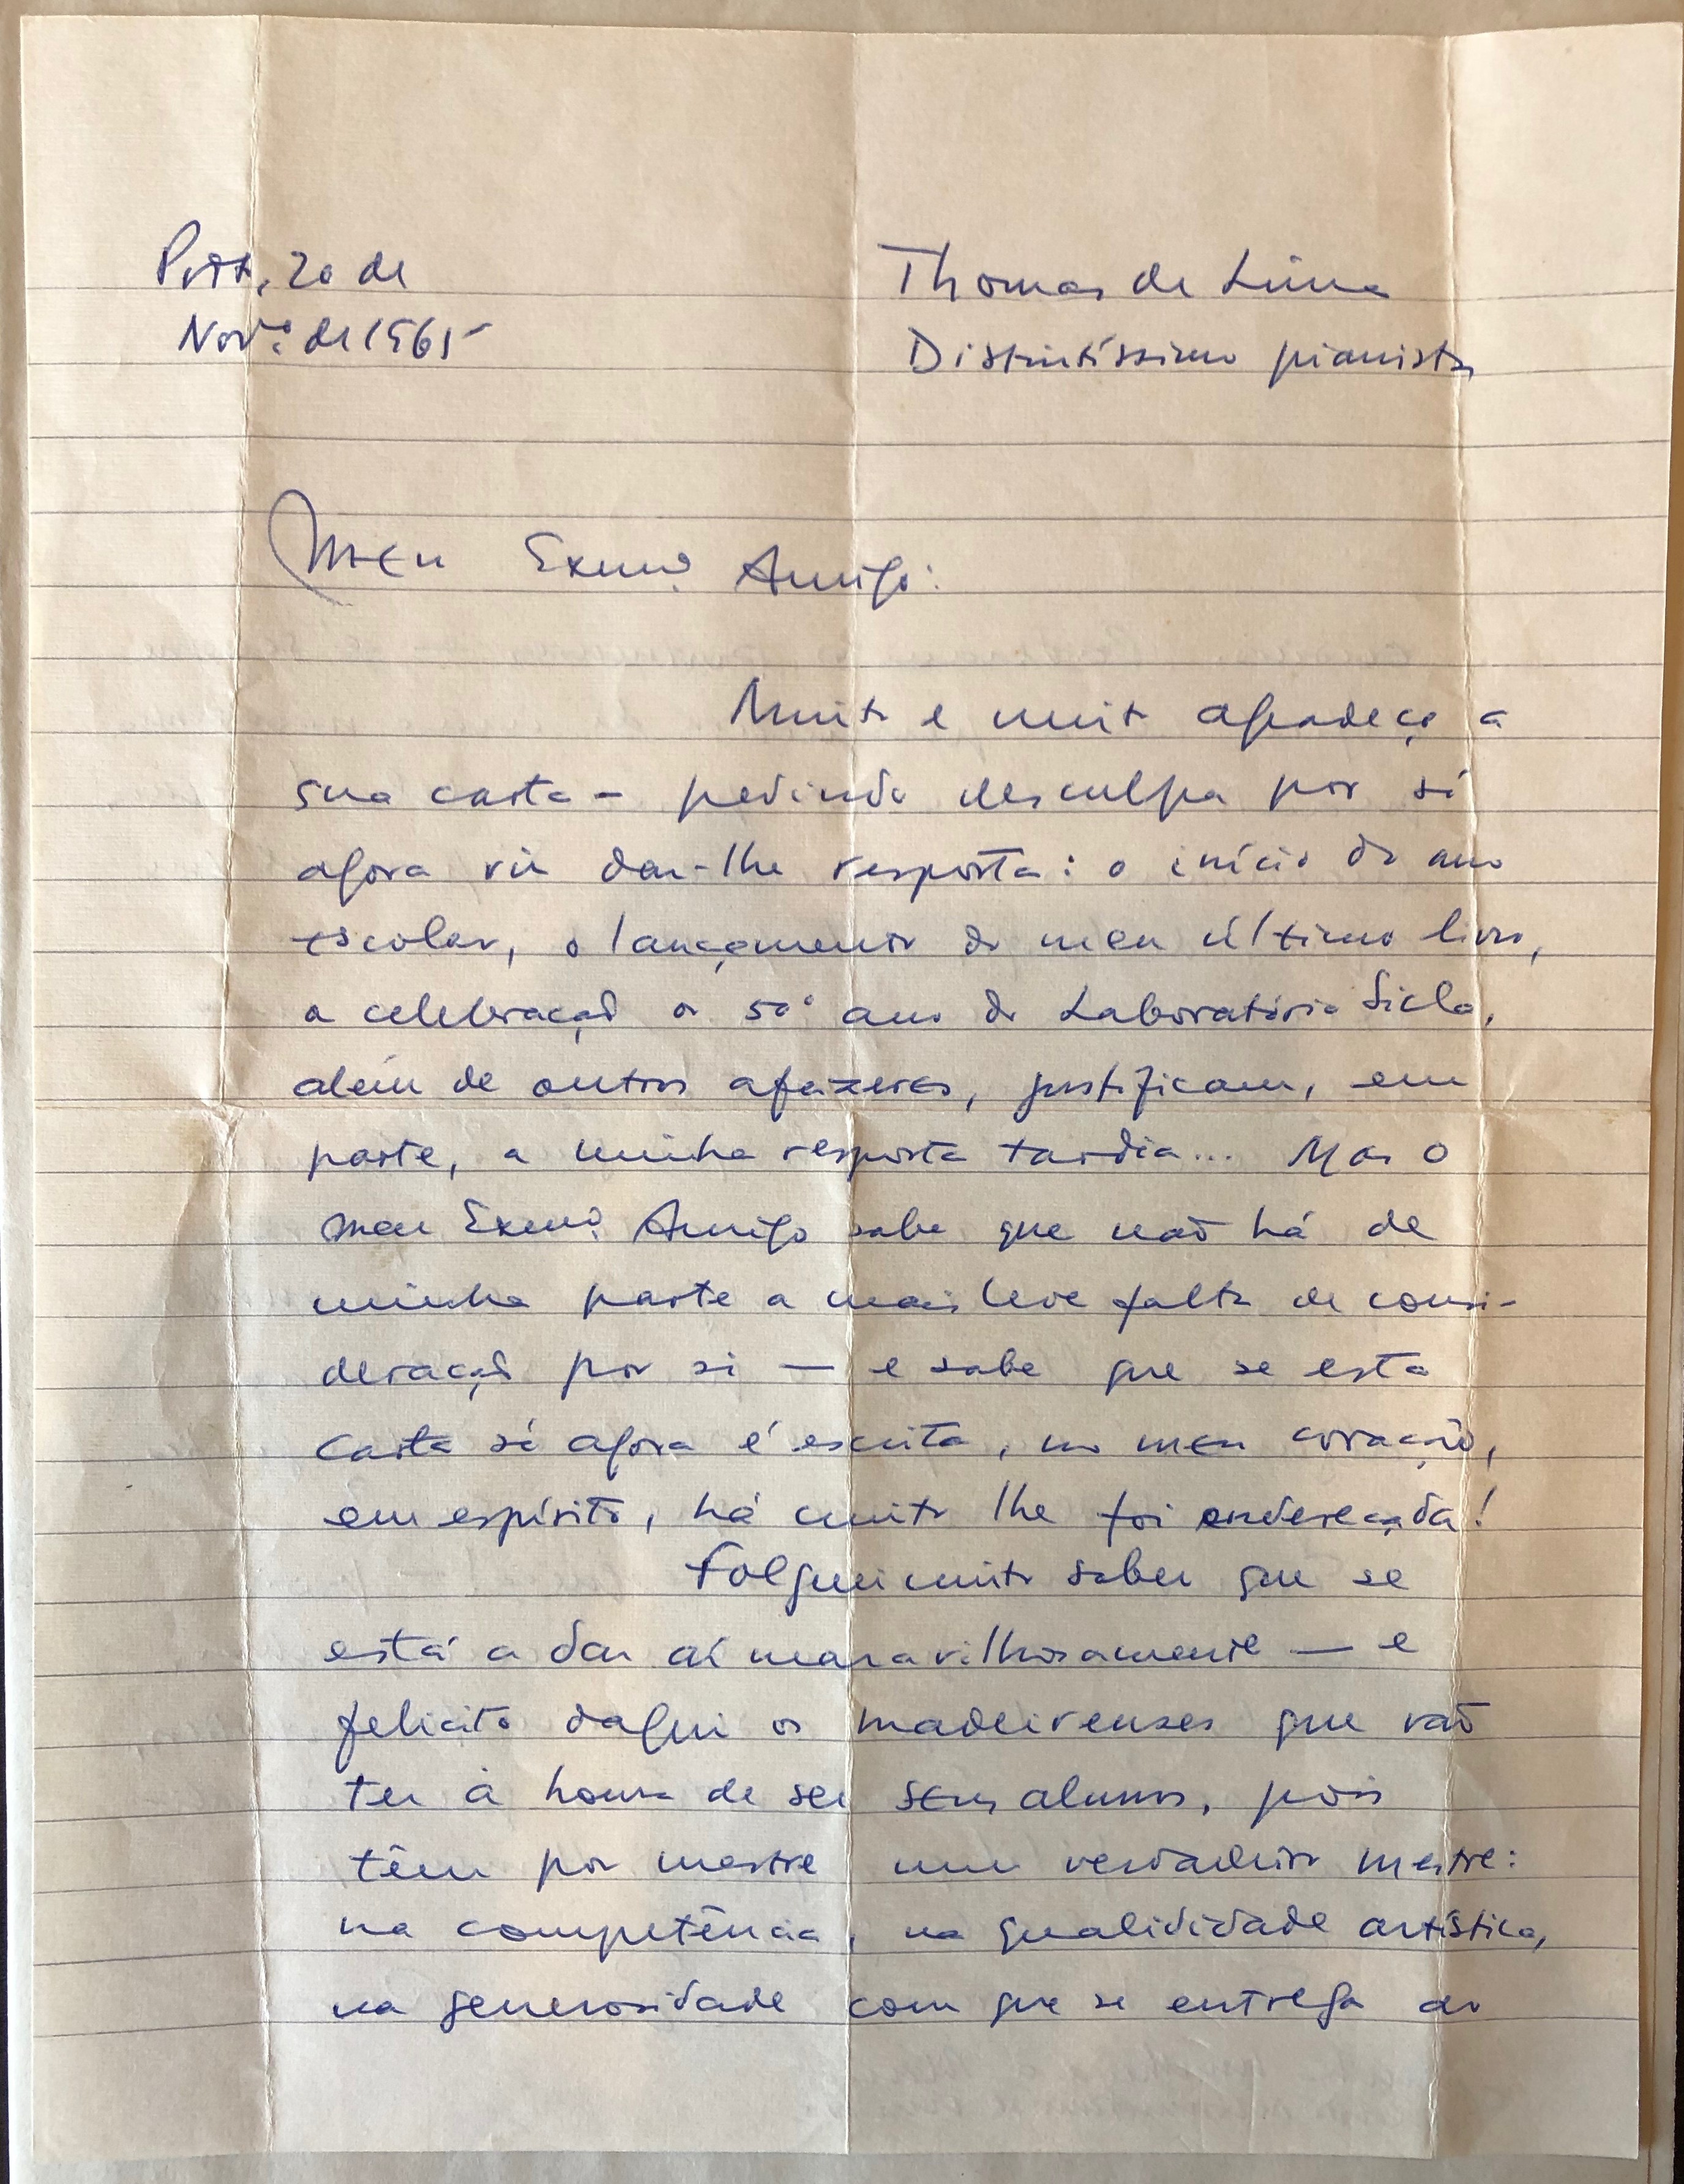 Porto, 20 de
Nov.º de 1965
Thomaz de Lima
Distintíssimo pianista
Meu Exmº. Amigo:
Muito e muito agradeço a
sua carta – pedindo desculpa por só
agora vir dar-lhe resposta: o início do ano
escolar, o lançamento do meu último livro,
a celebração o 50º ano do Laboratório
além de outros afazeres, justificam, em
parte, a minha resposta tardia... Mas o
meu Exmº. Amigo sabe que não há de
minha parte a mais leve falta de consi-
deração por si — e sabe que se esta
carta só agora é escrita, no meu coração,
em espírito, há muito lhe foi endereçada!
Folguei muito saber que se
está a dar aí maravilhosamente — e
felicito daqui os madeirenses que vão
ter à honra de ser seus alunos, pois
têm por mestre um verdadeiro mestre:
na competência, na qualididade artística,
na generosidade com que se entrega ao